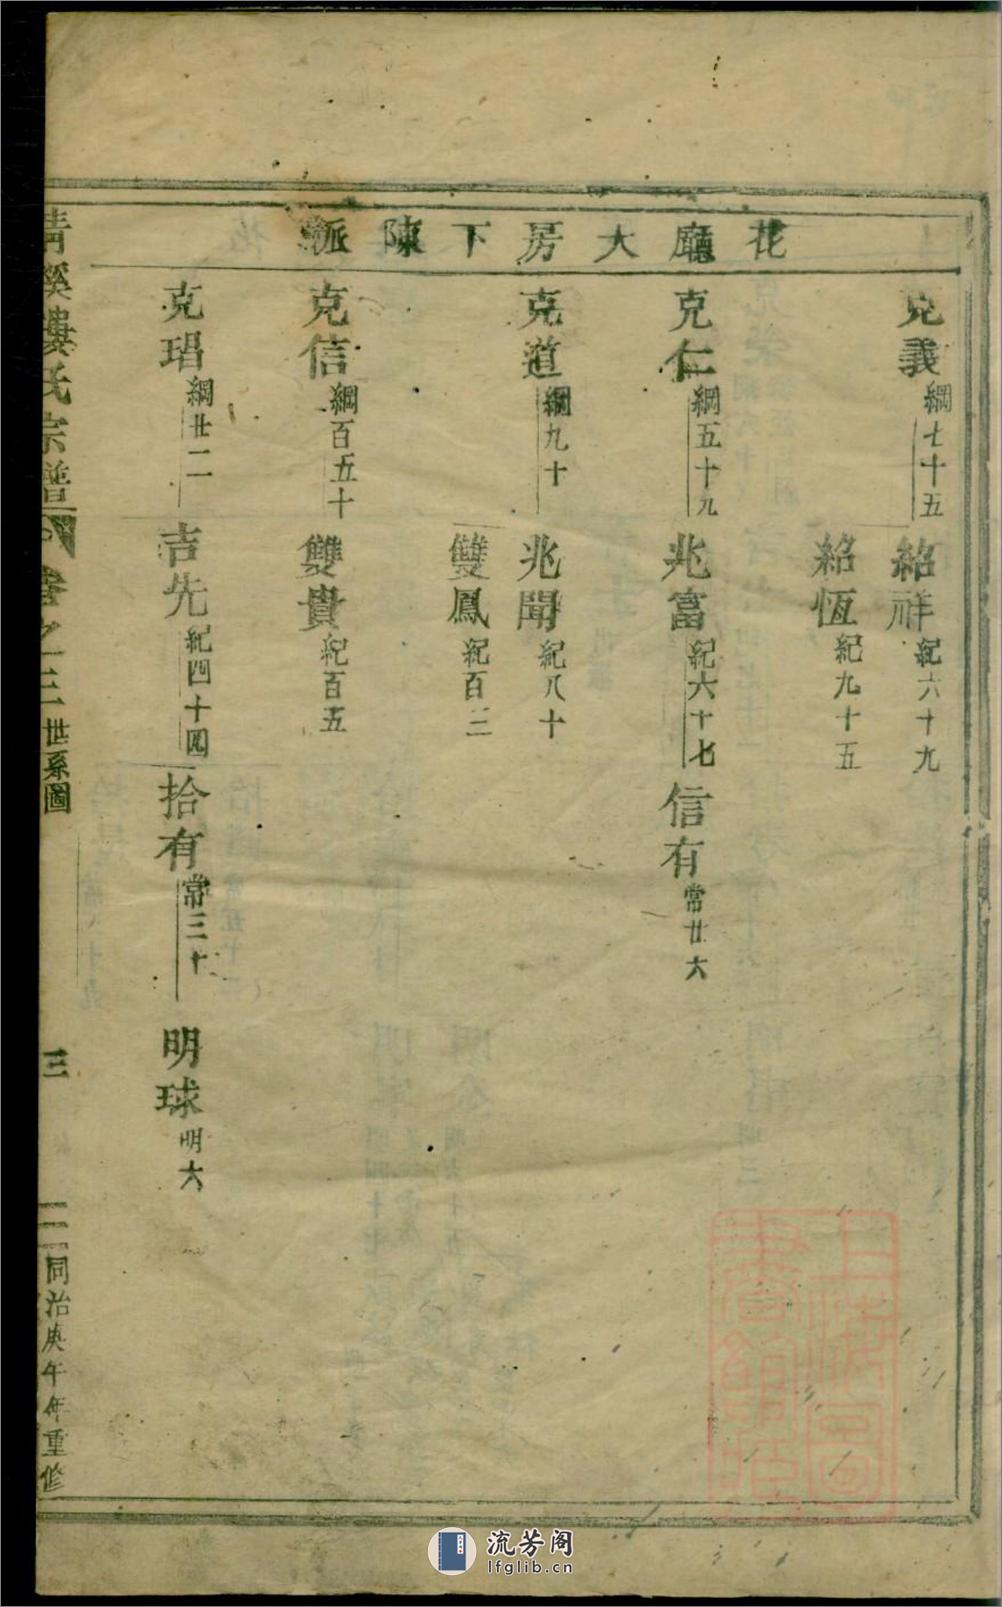 花廳大房下陳派
克義綱七十五
紹祥紀六十九
紹恆紀九十五
克仁綱五十九
兆富紀六十七
信有常廿六
克道綱九十
兆聞紀八十
雙鳳紀百二
克信綱百五十
雙貴紀百五
克琩綱廿二
吉先紀四十四
拾有常三十
明球明六
清溪婁氏宗譜
卷之三世系圖
三
同治庚午年重修
上海圖書館藏
流芳阁
lfglib.cn